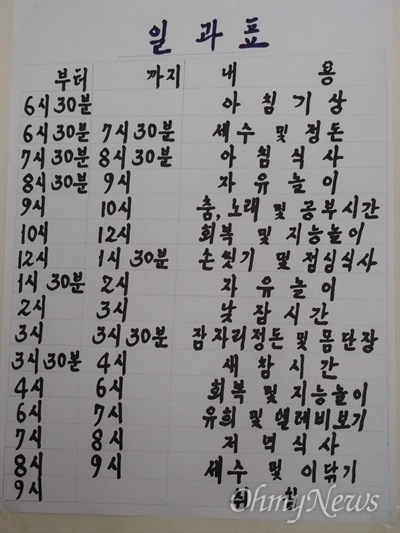 일 과 표
부터 까지 내 용
6시30분 아 침 기 상
6시30분 7시30분 세 수 및 정 돈
7시30분 8시30분 아 침 식 사
8시30분 9시 자 유 놀 이
9시 10시 춤, 노래 및 공부시간
10시 12시 회복 및 지능놀이
12시 1시30분 손씻기 및 점심식사
1시30분 2시 자 유 놀 이
2시 3시 낮 잠 시 간
3시 3시30분 잠자리정돈 및 몸단장
3시30분 4시 새 참 시 간
4시 6시 회복 및 지능놀이
6시 7시 유희 및 텔레비보기
7시 8시 저 녁 식 사
8시 9시 세수 및 이닦기
9시 취 침
OhmyNews